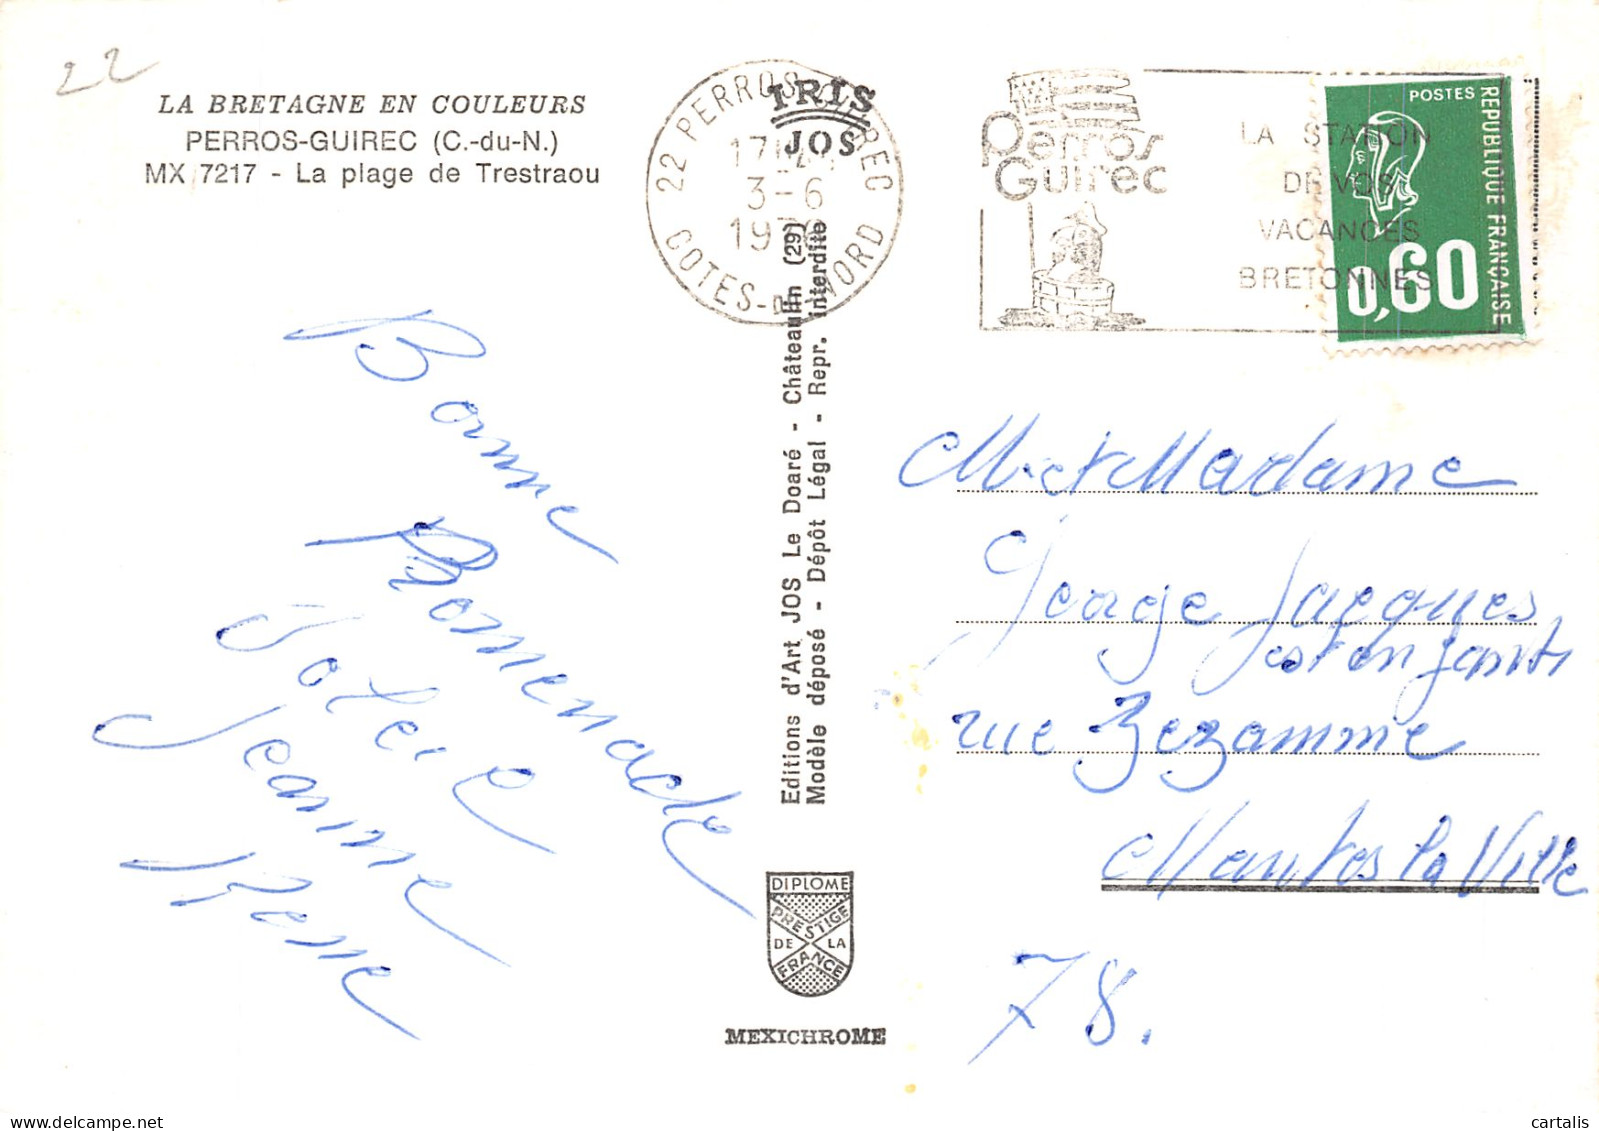 22
LA BRETAGNE EN COULEURS
PERROS-GUIREC (C.-du-N.)
MX 7217 - La plage de Trestraou
Bonne
Promenade
Jolie
Jeanne
Rene
22 PERROS GUIREC
17H
3-6
COTES-DU-NORD
IRIS
JOS
Editions d'Art JOS Le Doaré - Châteaulin (29)
Modèle déposé - Dépôt Légal - Repr. interdite
DIPLOME
PRESTIGE
DE LA
FRANCE
MEXICHROME
Perros
Guirec
LA STATION
DE VOS
VACANCES
BRETONNES
POSTES
REPUBLIQUE FRANÇAISE
0,60
M. et Madame
George Jacques
et enfants
rue
Mantes la Ville
78.
cartalis